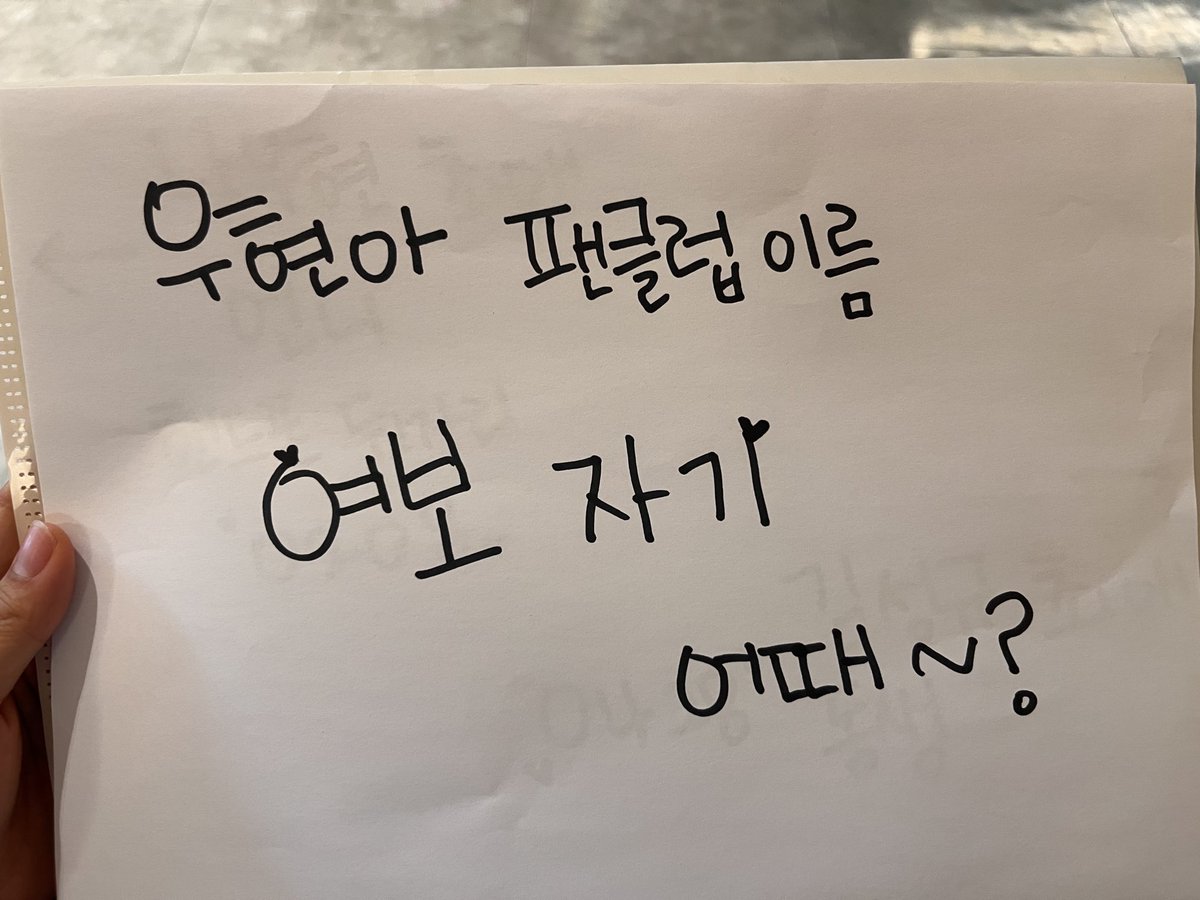 우현아 팬클럽 이름
여보 자기
어때 ~?